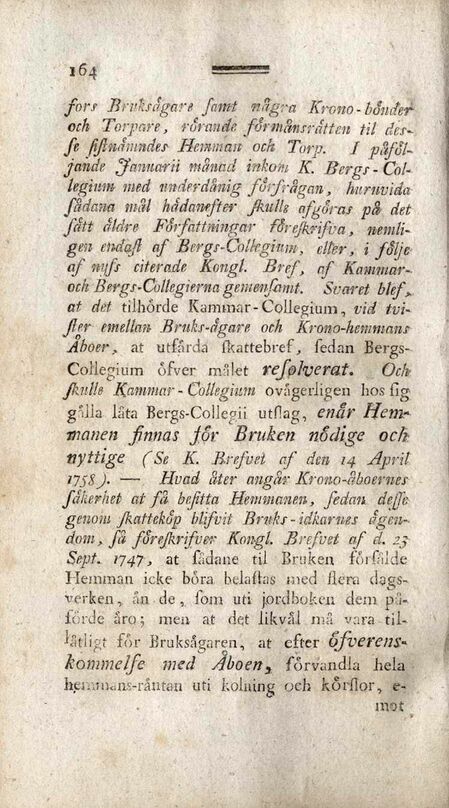 164
fors Bruksågare samt några Krono-bönder
och Torpare, rörande förmånsrätten til des-
se sistnämndes Hemman och Torp. I påföl-
jande Januarii månad inkom K. Bergs-Col-
legium med underdånig förfrågan, huruvida
sådana mål hådanefter skulle afgöras på det
sätt äldre Författningar föreskrifva, nemli-
gen endast af Bergs-Collegium, eller, i följe
af nyss citerade Kongl. Bref, af Kammar-
och Bergs-Collegierna gemensamt. Svaret blef,
at det tilhörde Kammar-Collegium, vid tvi-
ster emellan Bruks-ägare och Krono-hemmans
Åboer, at utfärda skattebref, sedan Bergs-
Collegium öfver målet resolverat. Och
skulle Kammar-Collegium ovägerligen hos sig
gälla låta Bergs-Collegii utslag, enär Hem-
manen finnas för Bruken nödige och
nyttige (Se K. Brefvet af den 14 April
1758). — Hvad åter angår Krono-åboernes
säkerhet at få besitta Hemmanen, sedan desse
genom skatteköp blifvit Bruks-idkarnes ägen-
dom, så föreskrifver Kongl. Brefvet af d. 23
Sept. 1747, at sådane til Bruken försålde
Hemman icke böra belastas med flera dags-
verken, än de, som uti jordboken dem på-
förde äro; men at det likväl må vara til-
låtligt för Bruksågaren, at efter öfverens-
kommelse med Åboen, förvandla hela
hemmans-räntan uti kolning och körslor, e-
mot